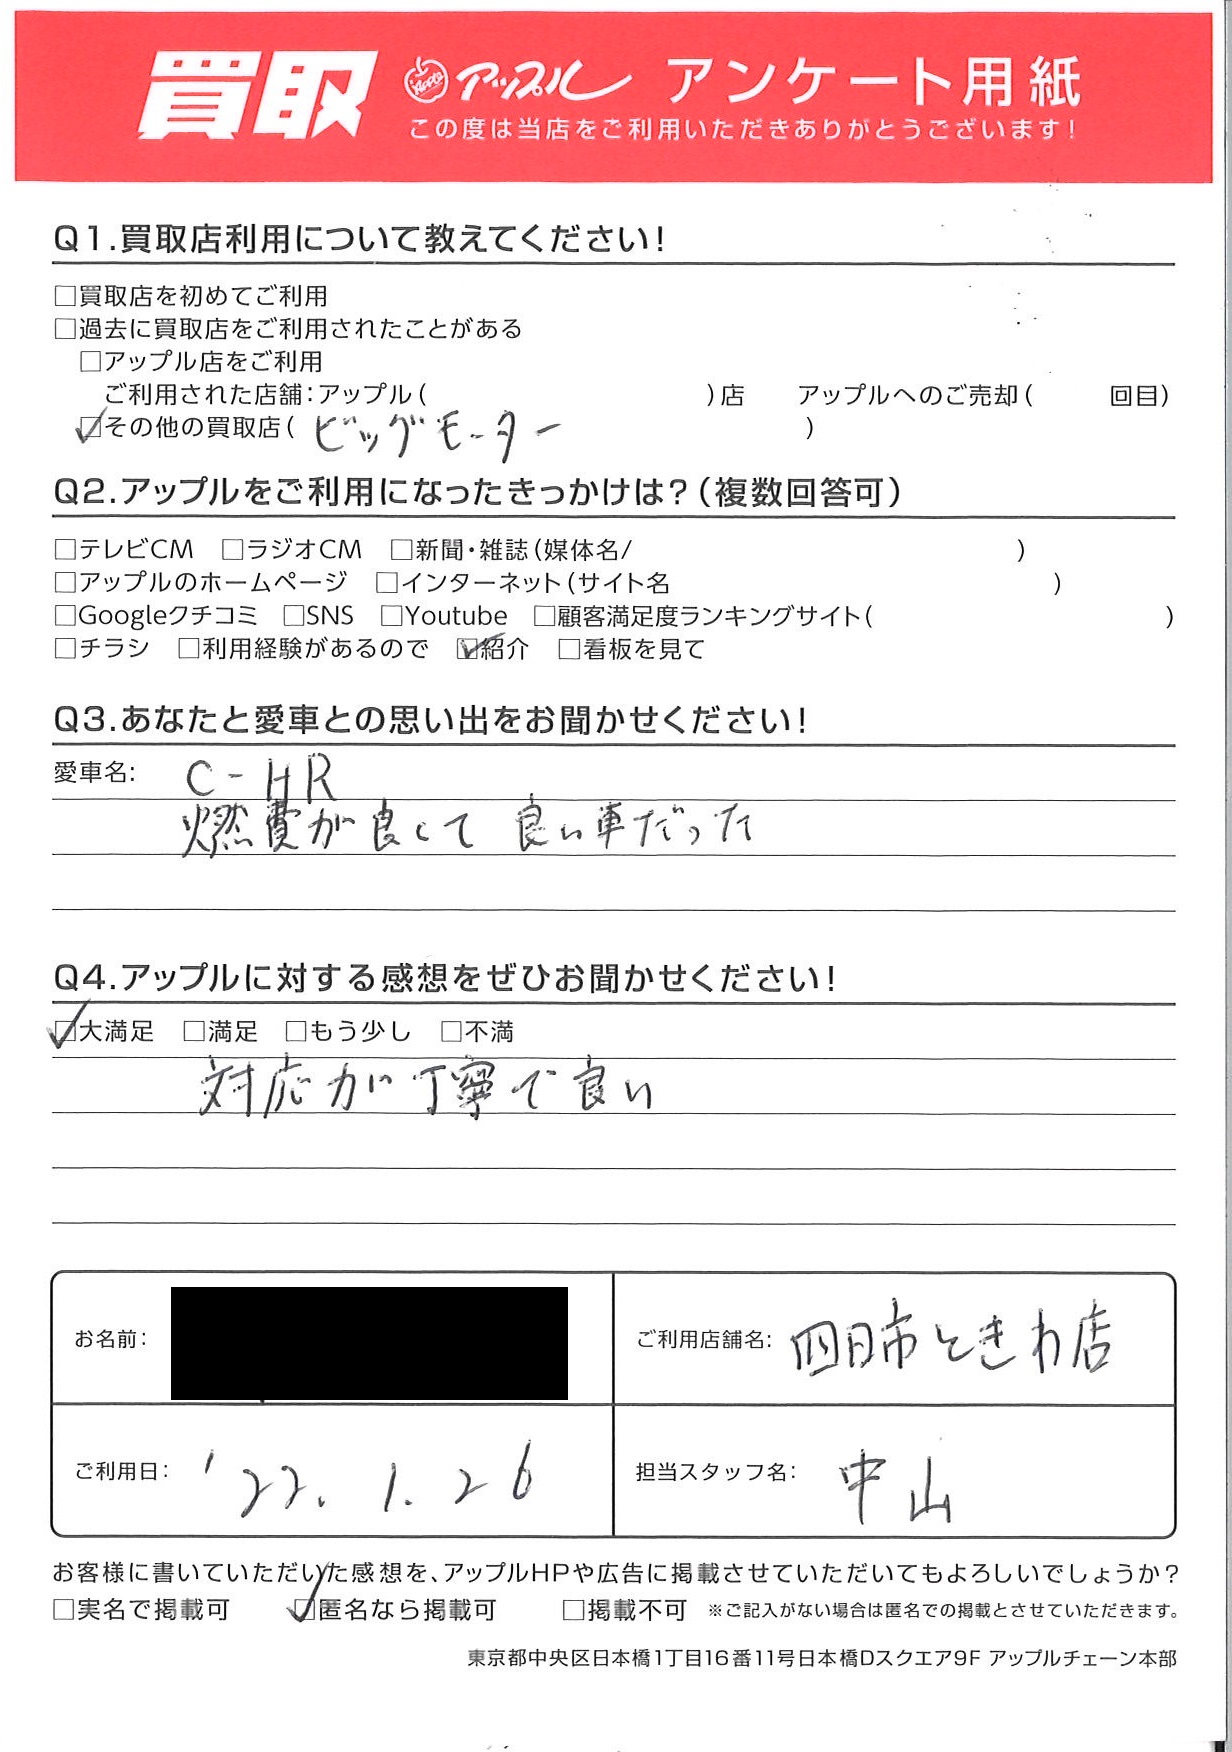 買取 Apple アップル アンケート用紙
この度は当店をご利用いただきありがとうございます!
Q1.買取店利用について教えてください!
□買取店を初めてご利用
□過去に買取店をご利用されたことがある
□アップル店をご利用
ご利用された店舗:アップル( )店 アップルへのご売却( 回目)
☑その他の買取店( ビッグモーター )
Q2.アップルをご利用になったきっかけは?(複数回答可)
□テレビCM □ラジオCM □新聞・雑誌(媒体名/ )
□アップルのホームページ □インターネット(サイト名 )
□Googleクチコミ □SNS □Youtube □顧客満足度ランキングサイト( )
□チラシ □利用経験があるので ☑紹介 □看板を見て
Q3.あなたと愛車との思い出をお聞かせください!
愛車名: C-HR
燃費が良くて 良い車だった
Q4.アップルに対する感想をぜひお聞かせください!
☑大満足 □満足 □もう少し □不満
対応が丁寧で良い
お名前:
ご利用店舗名: 四日市ときわ店
ご利用日: '22. 1. 26
担当スタッフ名: 中山
お客様に書いていただいた感想を、アップルHPや広告に掲載させていただいてもよろしいでしょうか?
□実名で掲載可 ☑匿名なら掲載可 □掲載不可 ※ご記入がない場合は匿名での掲載とさせていただきます。
東京都中央区日本橋1丁目16番11号日本橋Dスクエア9F アップルチェーン本部